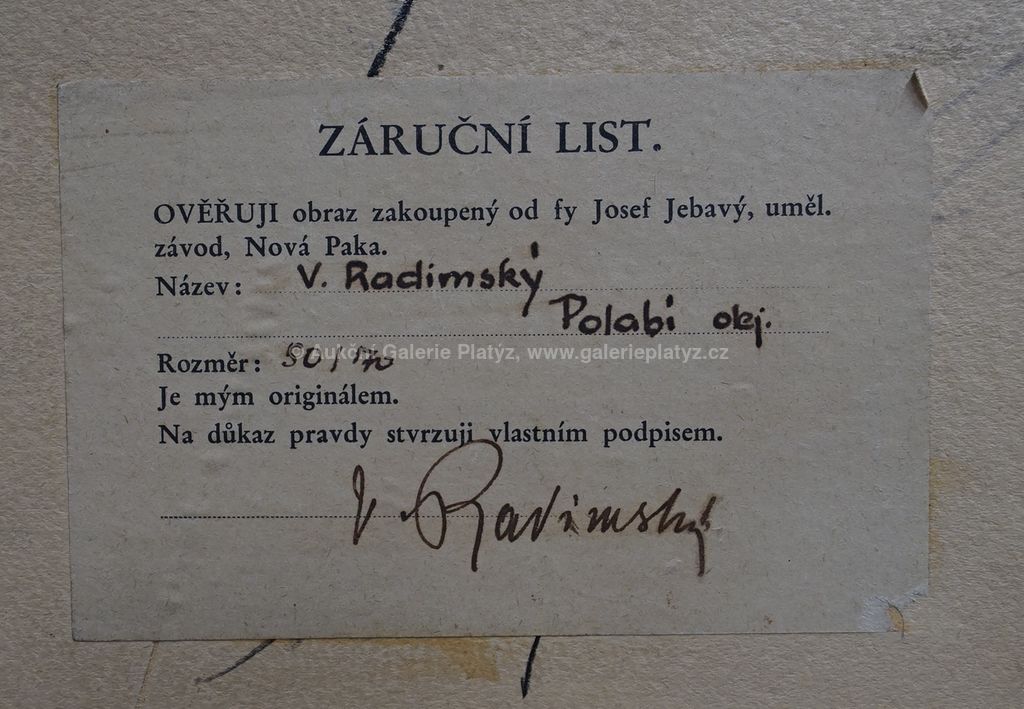 ZÁRUČNÍ LIST.
OVĚŘUJI obraz zakoupený od fy Josef Jebavý, uměl.
závod, Nová Paka.
Název: V. Radimský
Polabi olej.
© Aukční Galerie Platýz, www.galerieplatyz.cz
Rozměr: 50/70
Je mým originálem.
Na důkaz pravdy stvrzuji vlastním podpisem.
V. Radimský